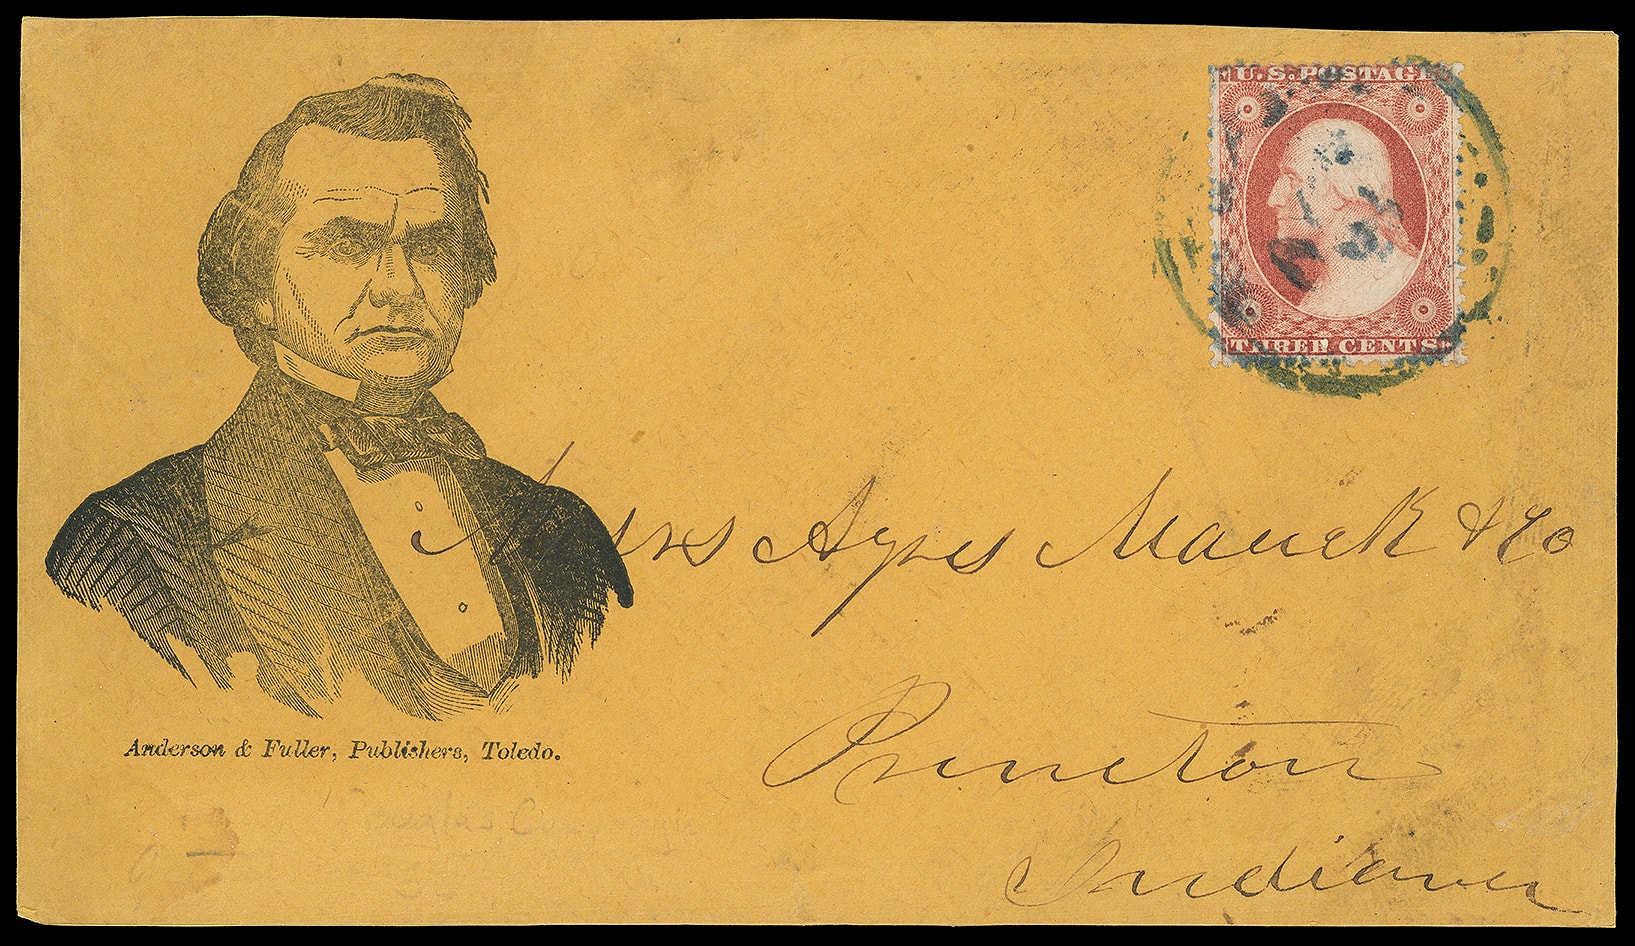 U.S. POSTAGE
THREE CENTS
Messrs Ayres Mauck & Co
Princeton
Indiana
Anderson & Fuller, Publishers, Toledo.
Douglas Campaign